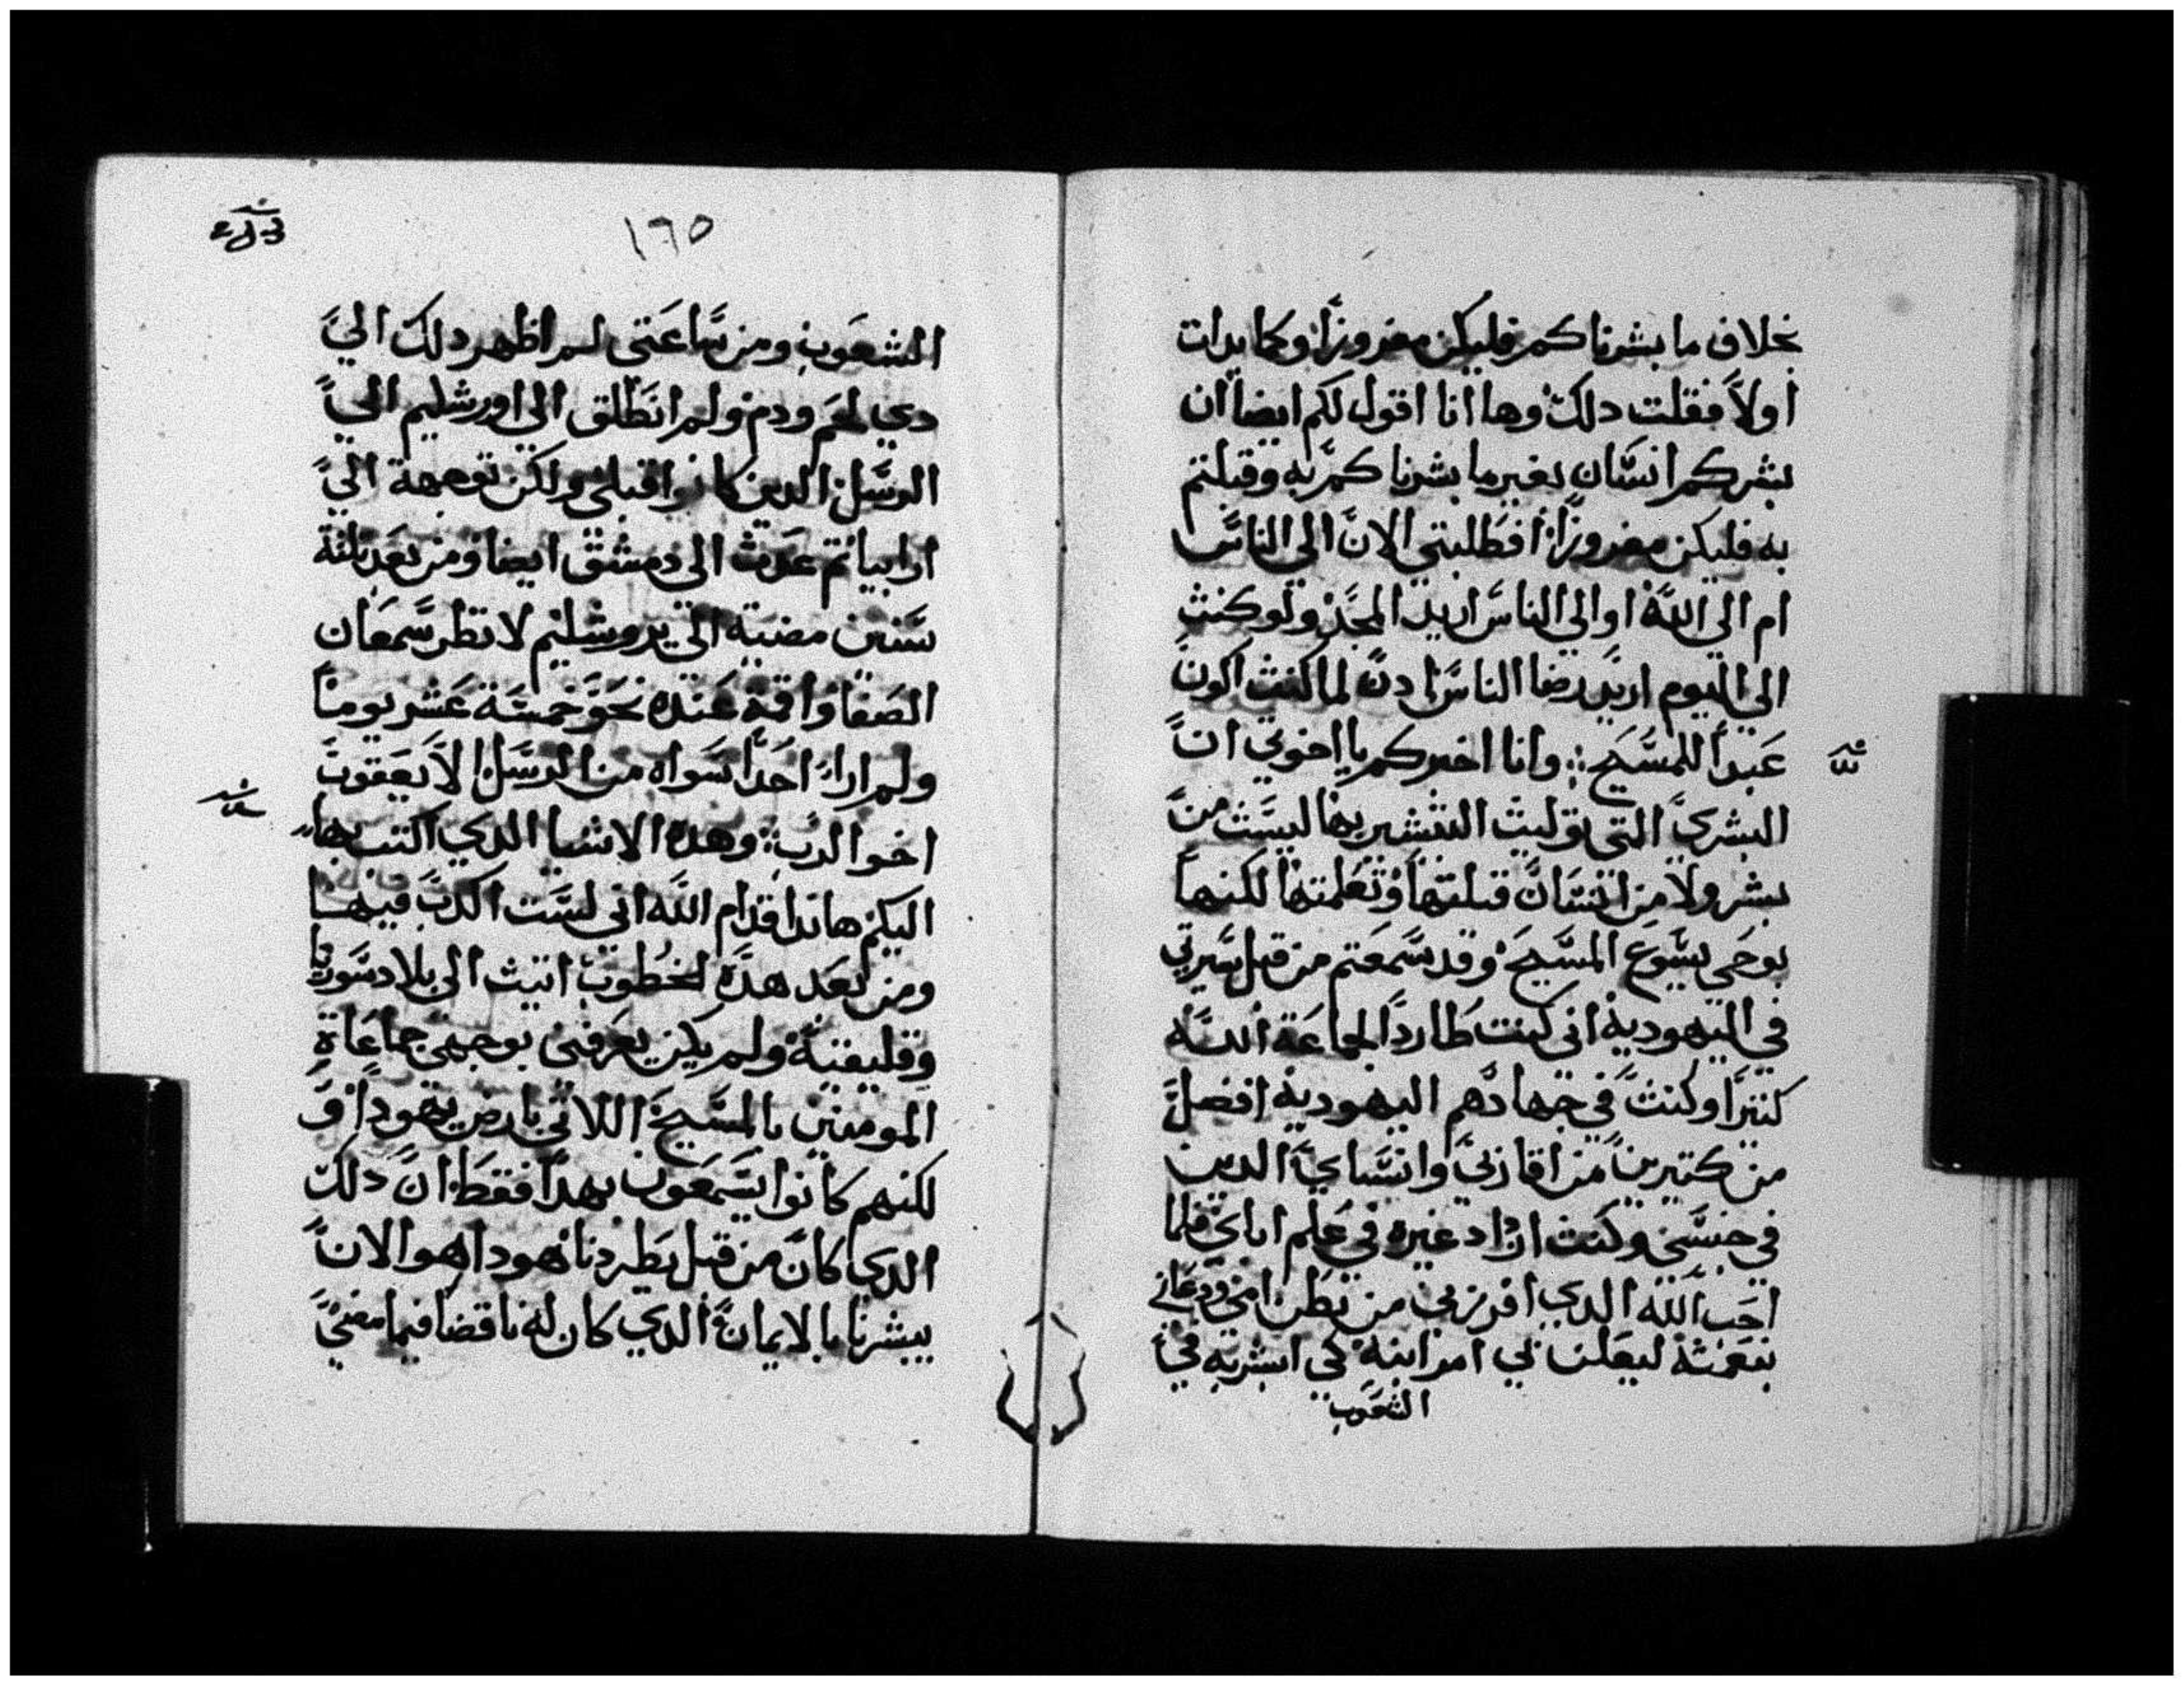 بخلاف ما بشرناكم فليكن مفروزاً وكما بدات
اولاً فقلت دلك وها انا اقول لكم ايضا ان
بشركم انسان بغير ما بشرناكم به وقبلتم
به فليكن مفروزاً افطلبتي الان الى الناس
ام الى الله او الي الناس اريد المجد ولو كنت
الى اليوم اريد رضا الناس ادن لما كنت اكون
عبداً للمسيح وانا اخبركم يا اخوتي ان
البشرى التى توليت التبشير بها ليست من
بشر ولا من انسان قبلتها وتعلمتها لكنها
بوحى يسوع المسيح وقد سمعتم من قبل بسيرتي
في اليهودية انى كنت طارداً لجماعة الله
كتيراً وكنت في جهادهم اليهودية افضل
من كتيرين من اقاربي وانسباي الدين
في جنسي وكنت ازداد غيره في علم اباي فلما
احب الله الدي افرزني من بطن امى ودعانى
بنعمته ليعلن لي امر ابنه لكي ابشر به في
الشعوب
١٦٥
الشعوب ومن ساعتى لم اظهر دلك الي
دي لحم ودم ولم انطلق الى اورشليم الى
الرسل الدين كانوا قبلى ولكن توجهة الى
ارابيا تم عدت الى دمشق ايضا ومن بعد تلتة
سنين مضية الى يروشليم لانظر سمعان
الصفا واقمة عنده نحو خمسة عشر يوماً
ولم ارا احداً سواه من الرسل الا يعقوب
اخو الرب وهده الاشيا الدي اكتب بها
اليكم هاندا قدام الله انى لست اكدب فيها
ومن بعد هده الخطوب اتيت الى بلاد سوريا
وقليقية ولم يكن يعرفنى بوجهى جماعاة
المومنين بالمسيح اللاتي بارض يهودا و
لكنهم كانوا يسمعون بهدا فقط ان دلك
الدي كان من قبل يطردنا هودا هو الان
يبشرنا بالايمان الدي كان له ناقضا فيما مضي